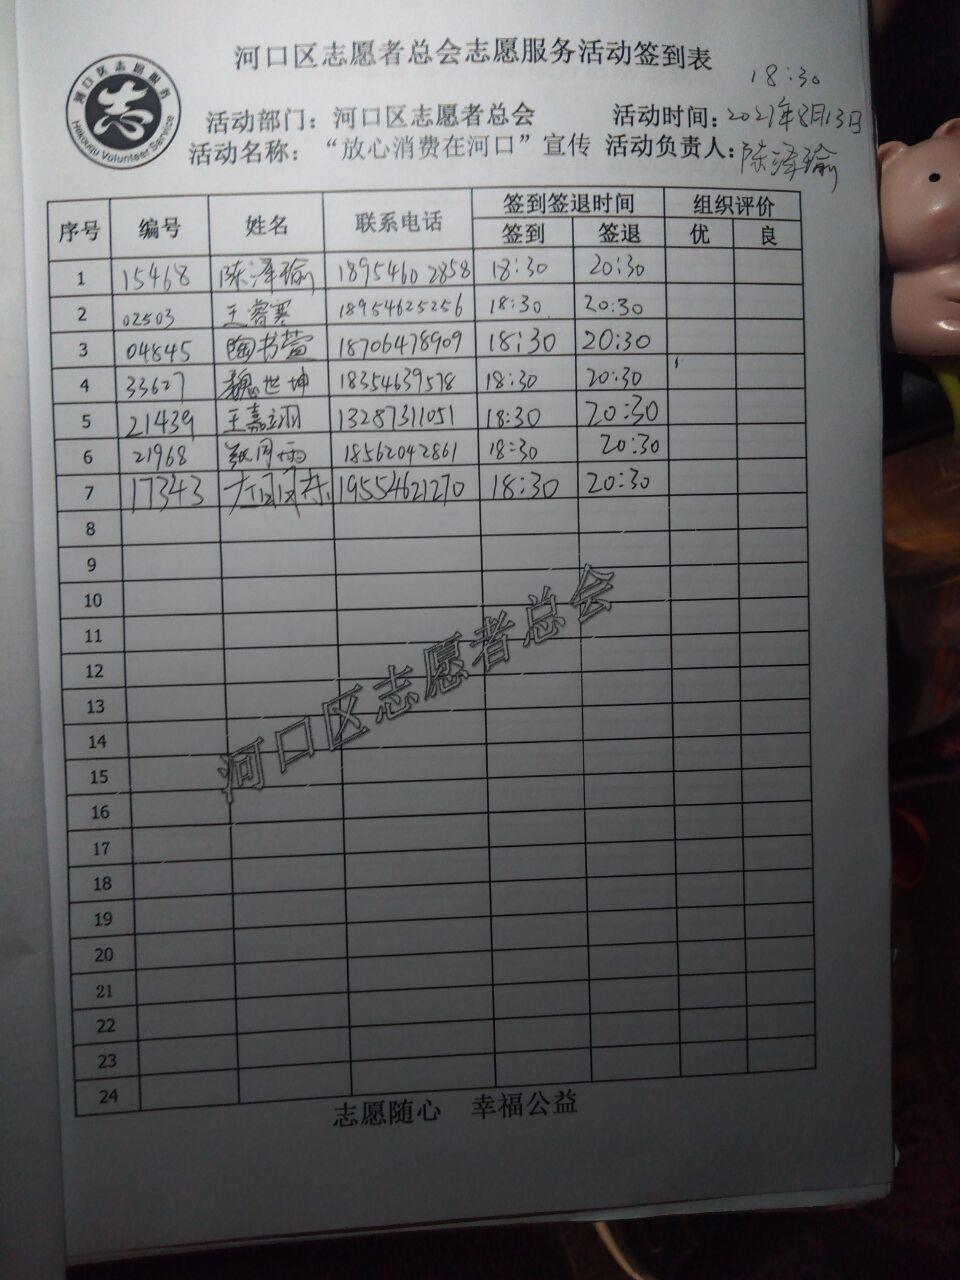 河口区志愿者总会志愿服务活动签到表
18:30
河口区志愿服务
志
Hekouqu Volunteer Service
活动部门：河口区志愿者总会 活动时间：2021年8月13日
活动名称：“放心消费在河口”宣传 活动负责人：陈泽瑜
序号 编号 姓名 联系电话 签到签退时间 组织评价
签到 签退 优 良
1 15468 陈泽瑜 18954602858 18:30 20:30
2 02503 王睿寒 18954625256 18:30 20:30
3 04845 陶书萱 18706478909 18:30 20:30
4 33627 魏世坤 18354639578 18:30 20:30
5 21439 王嘉翊 13287311051 18:30 20:30
6 21968 18562042861 18:30 20:30
7 17343 19554621270 18:30 20:30
8
9
10
11
12
13
14
15
16
17
18
19
20
21
22
23
24
河口区志愿者总会
志愿随心 幸福公益